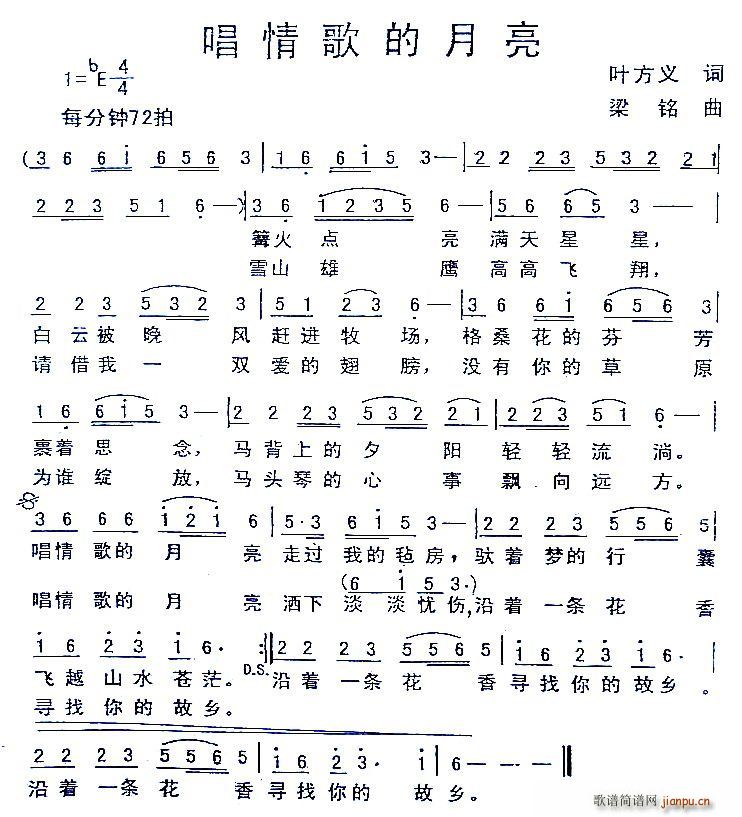 唱情歌的月亮
1=ᵇE 4/4
叶方义 词
每分钟72拍
梁 铭 曲
(3 6 6 i 6 5 6 3 | 1 6 6 i 5 3 — | 2 2 2 3 5 3 2 2 1
2 2 3 5 1 6 —) | 3 6 1 2 3 5 6 — | 5 6 6 5 3 — |
篝火 点 亮 满天星 星,
雪山 雄 鹰 高高飞 翔,
2 2 2 3 5 3 2 3 | 5 1 2 3 6 — | 3 6 6 i 5 6 5 3
白云被晚 风赶进牧 场, 格桑花的芬 芳
请借我一 双爱的翅 膀, 没有你的草 原
1 6 6 i 5 3 — | 2 2 2 3 5 3 2 2 1 | 5 2 3 5 1 6 —
裹着思 念, 马背上的夕 阳轻轻流 淌。
为谁绽 放, 马头琴的心 事飘向远 方。
3 6 6 6 i 2 i 6 | 5·3 6 i 5 3 — | 2 2 2 3 5 5 6 5
唱情歌的月 亮走过我的毡房, 驮着梦的行 囊
(6 i 5 3·)
唱情歌的月 亮洒下淡淡忧伤,沿着一条花 香
i 6 2 3 i 6· :|| 2 2 2 3 5 5 6 5 | i 6 2 3 i 6· |
飞越山水苍茫。 D.S. 沿着一条花 香寻找你的故乡。
寻找你的故乡。
2 2 2 3 5 5 6 5 | i 6 2 3 2 i | 6 — — ||
沿着一条花 香寻找你的 故 乡。
歌谱简谱网 jianpu.cn